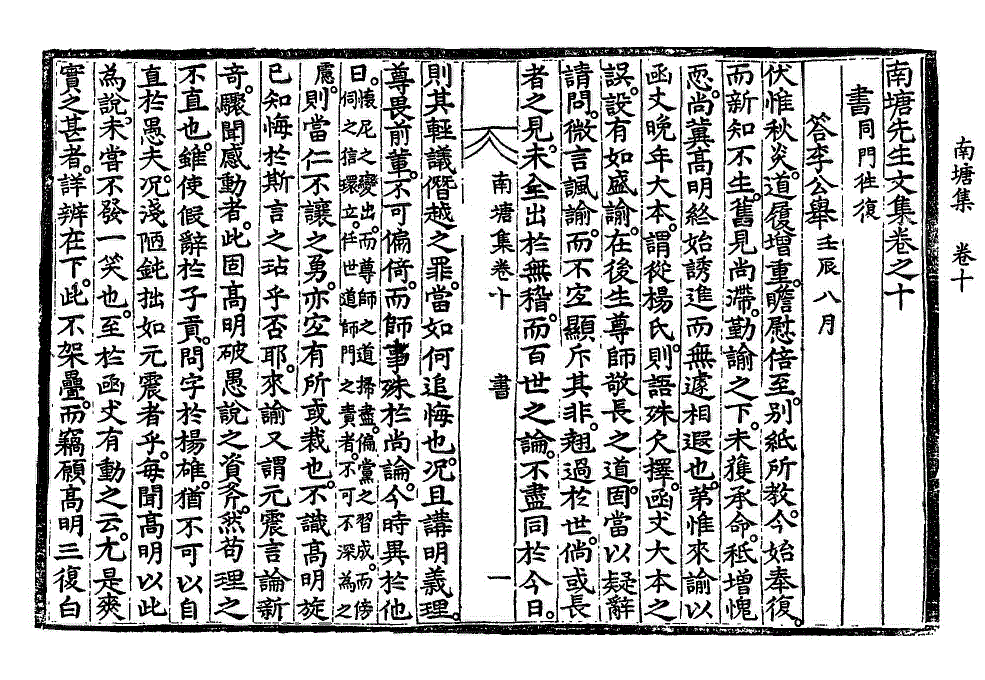 南塘集　卷十
南塘先生文集卷之十
書同門往復
答李公舉壬辰八月
伏惟秋炎。道履增重。瞻慰倍至。別紙所教。今始奉復。
而新知不生。舊見尚滯。勤諭之下。未獲承命。秪增愧
恧。尚冀高明終始誘進而無遽相遐也。第惟來諭以
函丈晚年大本。謂從楊氏。則語殊欠擇。函丈大本之
誤。設有如盛諭。在後生尊師敬長之道。固當以疑辭
請問。微言諷諭。而不宜顯斥其非。翹過於世。倘或長
者之見。未全出於無稽。而百世之論。不盡同於今日。
南塘集卷十　書　一
則其輕議僭越之罪。當如何追悔也。况且講明義理。
尊畏前輩。不可偏倚。而師事殊於尚論。今時異於他
日。懷尼之變出。而尊師之道掃盡。偏黨之習成。而傍
伺之信環立。任世道師門之責者。不可不深為之
慮。則當仁不讓之勇。亦宜有所或裁也。不識高明旋
已知悔於斯言之玷乎否耶。來諭又謂元震言論新
奇。驟聞感動者。此固高明破愚說之資斧。然苟理之
不直也。雖使假辭於子貢。問字於楊雄。猶不可以自
直於愚夫。况淺陋鈍拙如元震者乎。每聞高明以此
為說。未嘗不發一笑也。至於函丈有動之云。尤是爽
實之甚者。詳辨在下。此不架疊。而竊願高明三復白